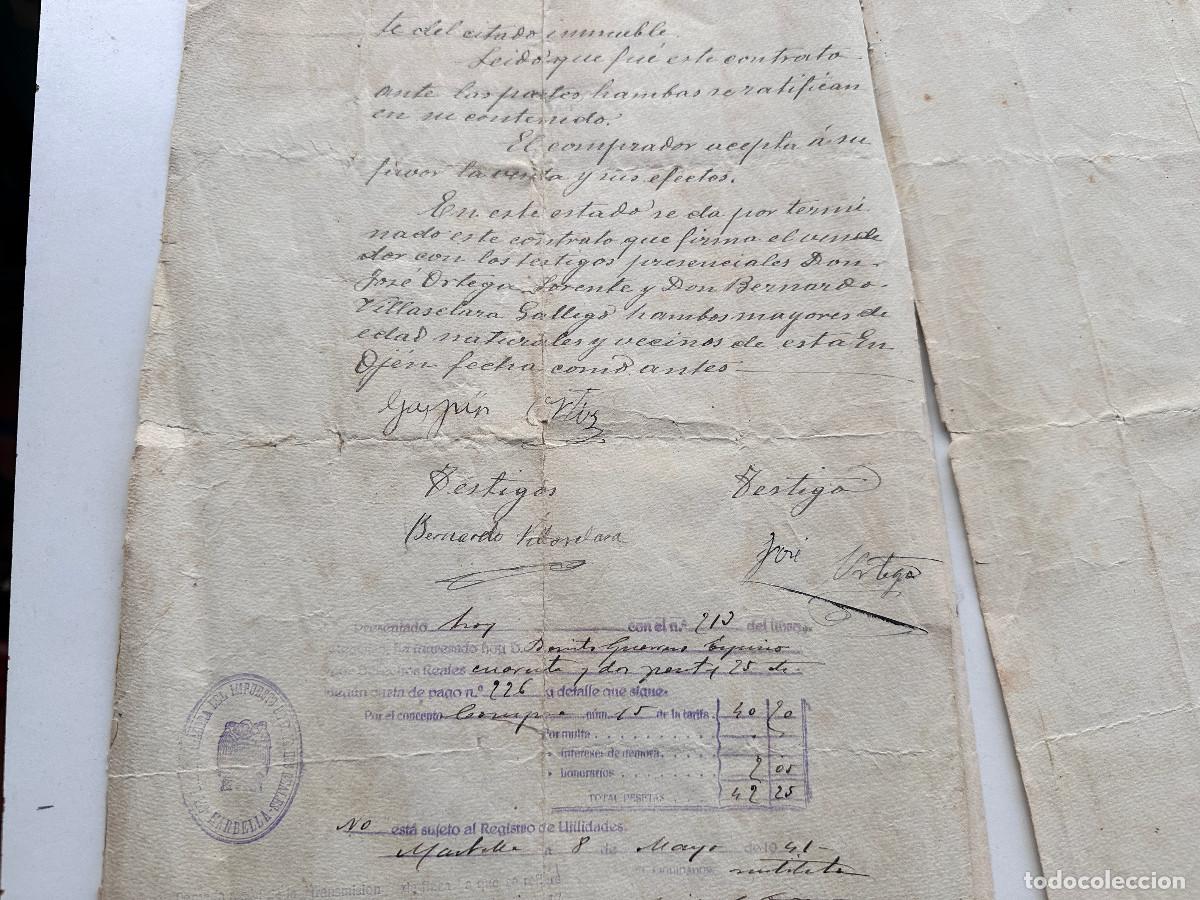 te del citado inmueble.
Leido que fué este contrato
ante las partes hambas se ratifican
en su contenido.
El comprador acepta á su
favor la venta y sus efectos.
En este estado se da por termi
nado este contrato que firma el vende
dor con los testigos presenciales Don
José Ortega Lorente y Don Bernardo
Villasclara Gallego hambos mayores de
edad naturales y vecinos de esta En
Ojén fecha como antes
Gaspár
Testigos Testigo
Bernardo José Ortega
Presentado hoy con el n.º 213 del libro
ha ingresado hoy D.
Derechos Reales cuarenta y dos pesetas 25 cts
según carta de pago n.º 226 y detalle que sigue:
Por el concepto Compra núm. 15 de la tarifa. 40 20
Por multa
» intereses de demora.
» honorarios 2 05
TOTAL PESETAS 42 25
No está sujeto al Registro de Utilidades.
Marbella a 8 de Mayo de 1941
MARBELLA
todocoleccion